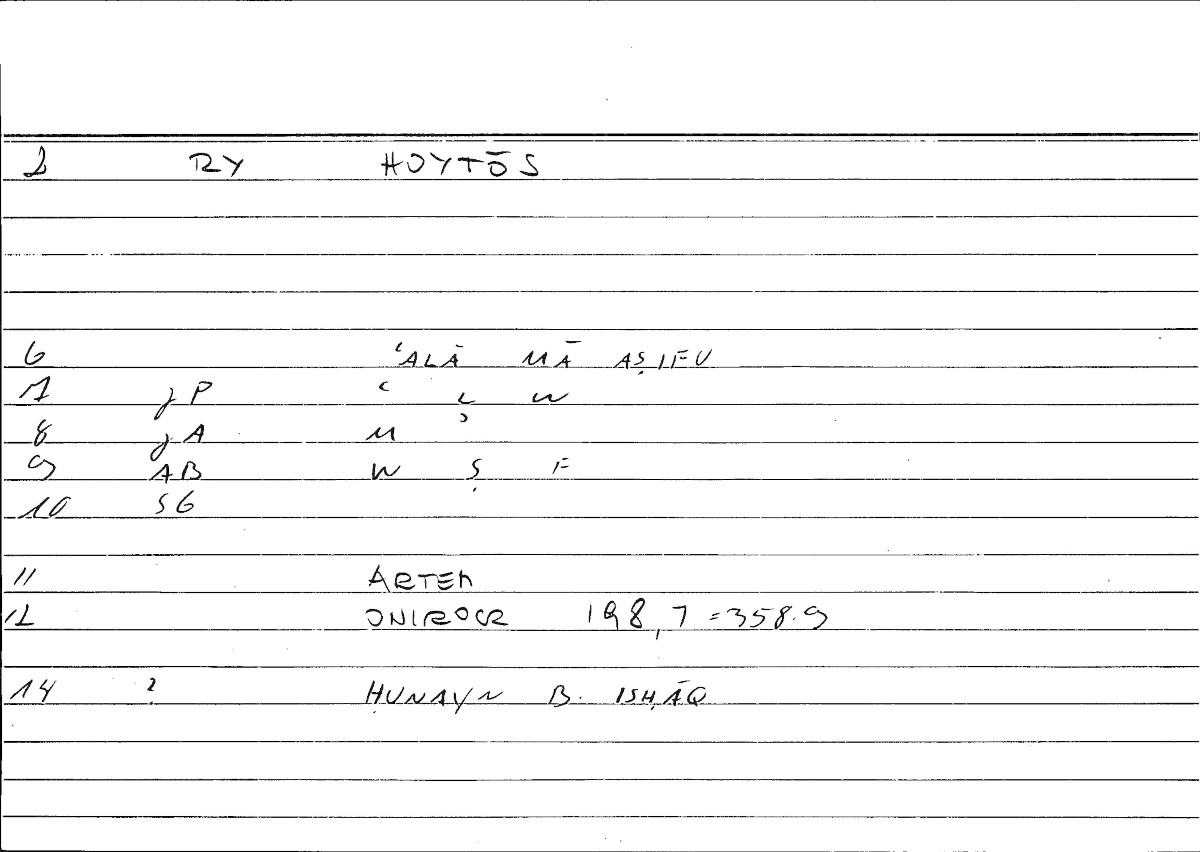 2 RY HOYTŌS
6 ʿALĀ MĀ AṢIFU
7 jP ʿ L W
8 jA M ʾ
9 AB W Ṣ F
10 SG
11 ARTEM
12 ONIROCR 198,7 = 358.9
14 ? ḤUNAYN B. ISḤĀQ